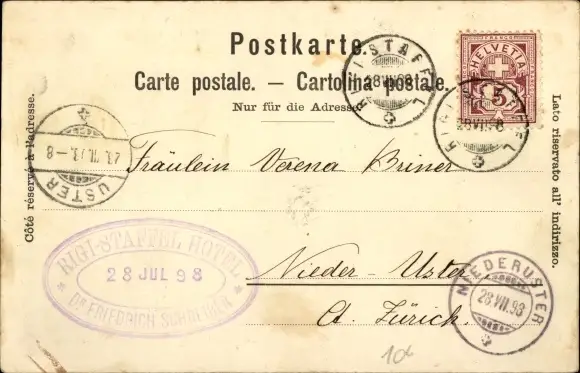 Postkarte.
Carte postale. — Cartolina postale.
Nur für die Adresse.
Côté réservé à l'adresse.
Lato riservato all' indirizzo.
RIGI STAFFEL
28 VII 98
HELVETIA
FRANCO
5
RIGI STAFFEL
28 VII 98
USTER
Fräulein Verena Briner
RIGI-STAFFEL HOTEL
28 JUL 98
Dr FRIEDRICH SCHREIBER
Nieder-Uster
Ct. Zürich.
NIEDERUSTER
28 VII 98
10x